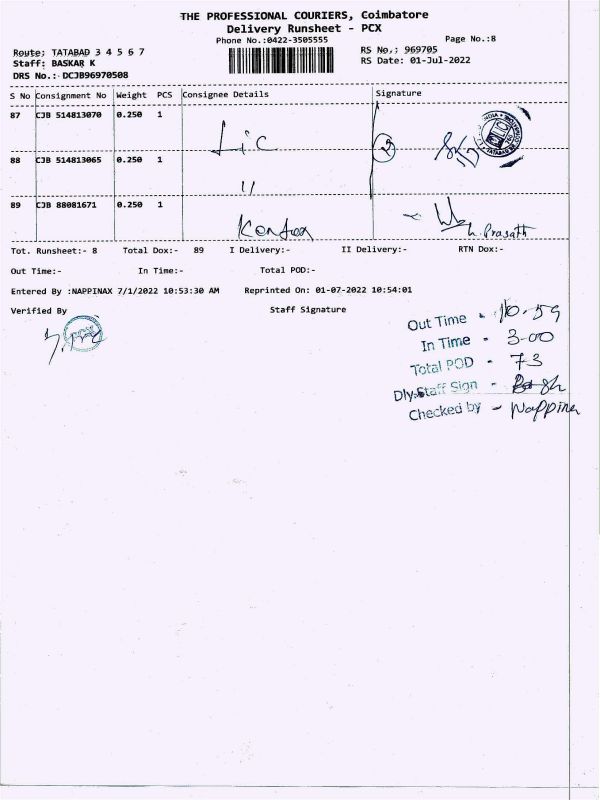 THE PROFESSIONAL COURIERS, Coimbatore
Delivery Runsheet - PCX
Phone No.:0422-3505555
Page No.:8
Route: TATABAD 3 4 5 6 7
RS No.: 969705
Staff: BASKAR K
RS Date: 01-Jul-2022
DRS No.:- DCJB96970508
S No Consignment No Weight PCS Consignee Details Signature
87 CJB 514813070 0.250 1
Lic
88 CJB 514813065 0.250 1
11
89 CJB 88081671 0.250 1
h. Prasath
Tot. Runsheet:- 8 Total Dox:- 89 I Delivery:- II Delivery:- RTN Dox:-
Out Time:- In Time:- Total POD:-
Entered By :NAPPINAX 7/1/2022 10:53:30 AM Reprinted On: 01-07-2022 10:54:01
Verified By Staff Signature
Out Time - 10-59
In Time - 3-00
Total POD - 73
Dly.Staff Sign -
Checked by - Nappina